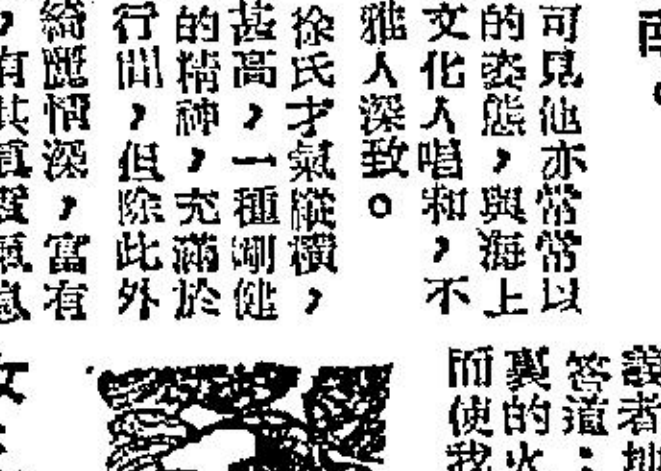 可見他亦常常以
的姿態，與海上
文化人唱和，不
雅人深致。
徐氏才氣縱橫，
甚高，一種剛健
的精神，充滿於
行間，但除此外
綺麗情深，富有
，有其氣質氣息
者
答道：
裏的火
而使我